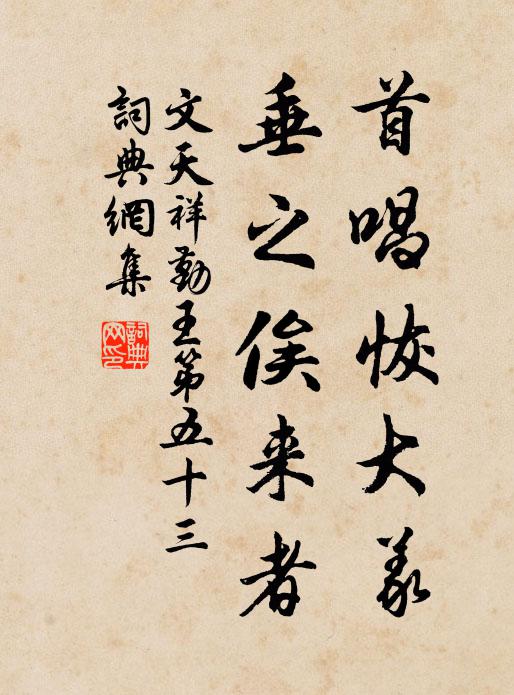 首唱恢大義
垂之俟来者
文天祥勤王第五十三
詞典網集
詞典網印